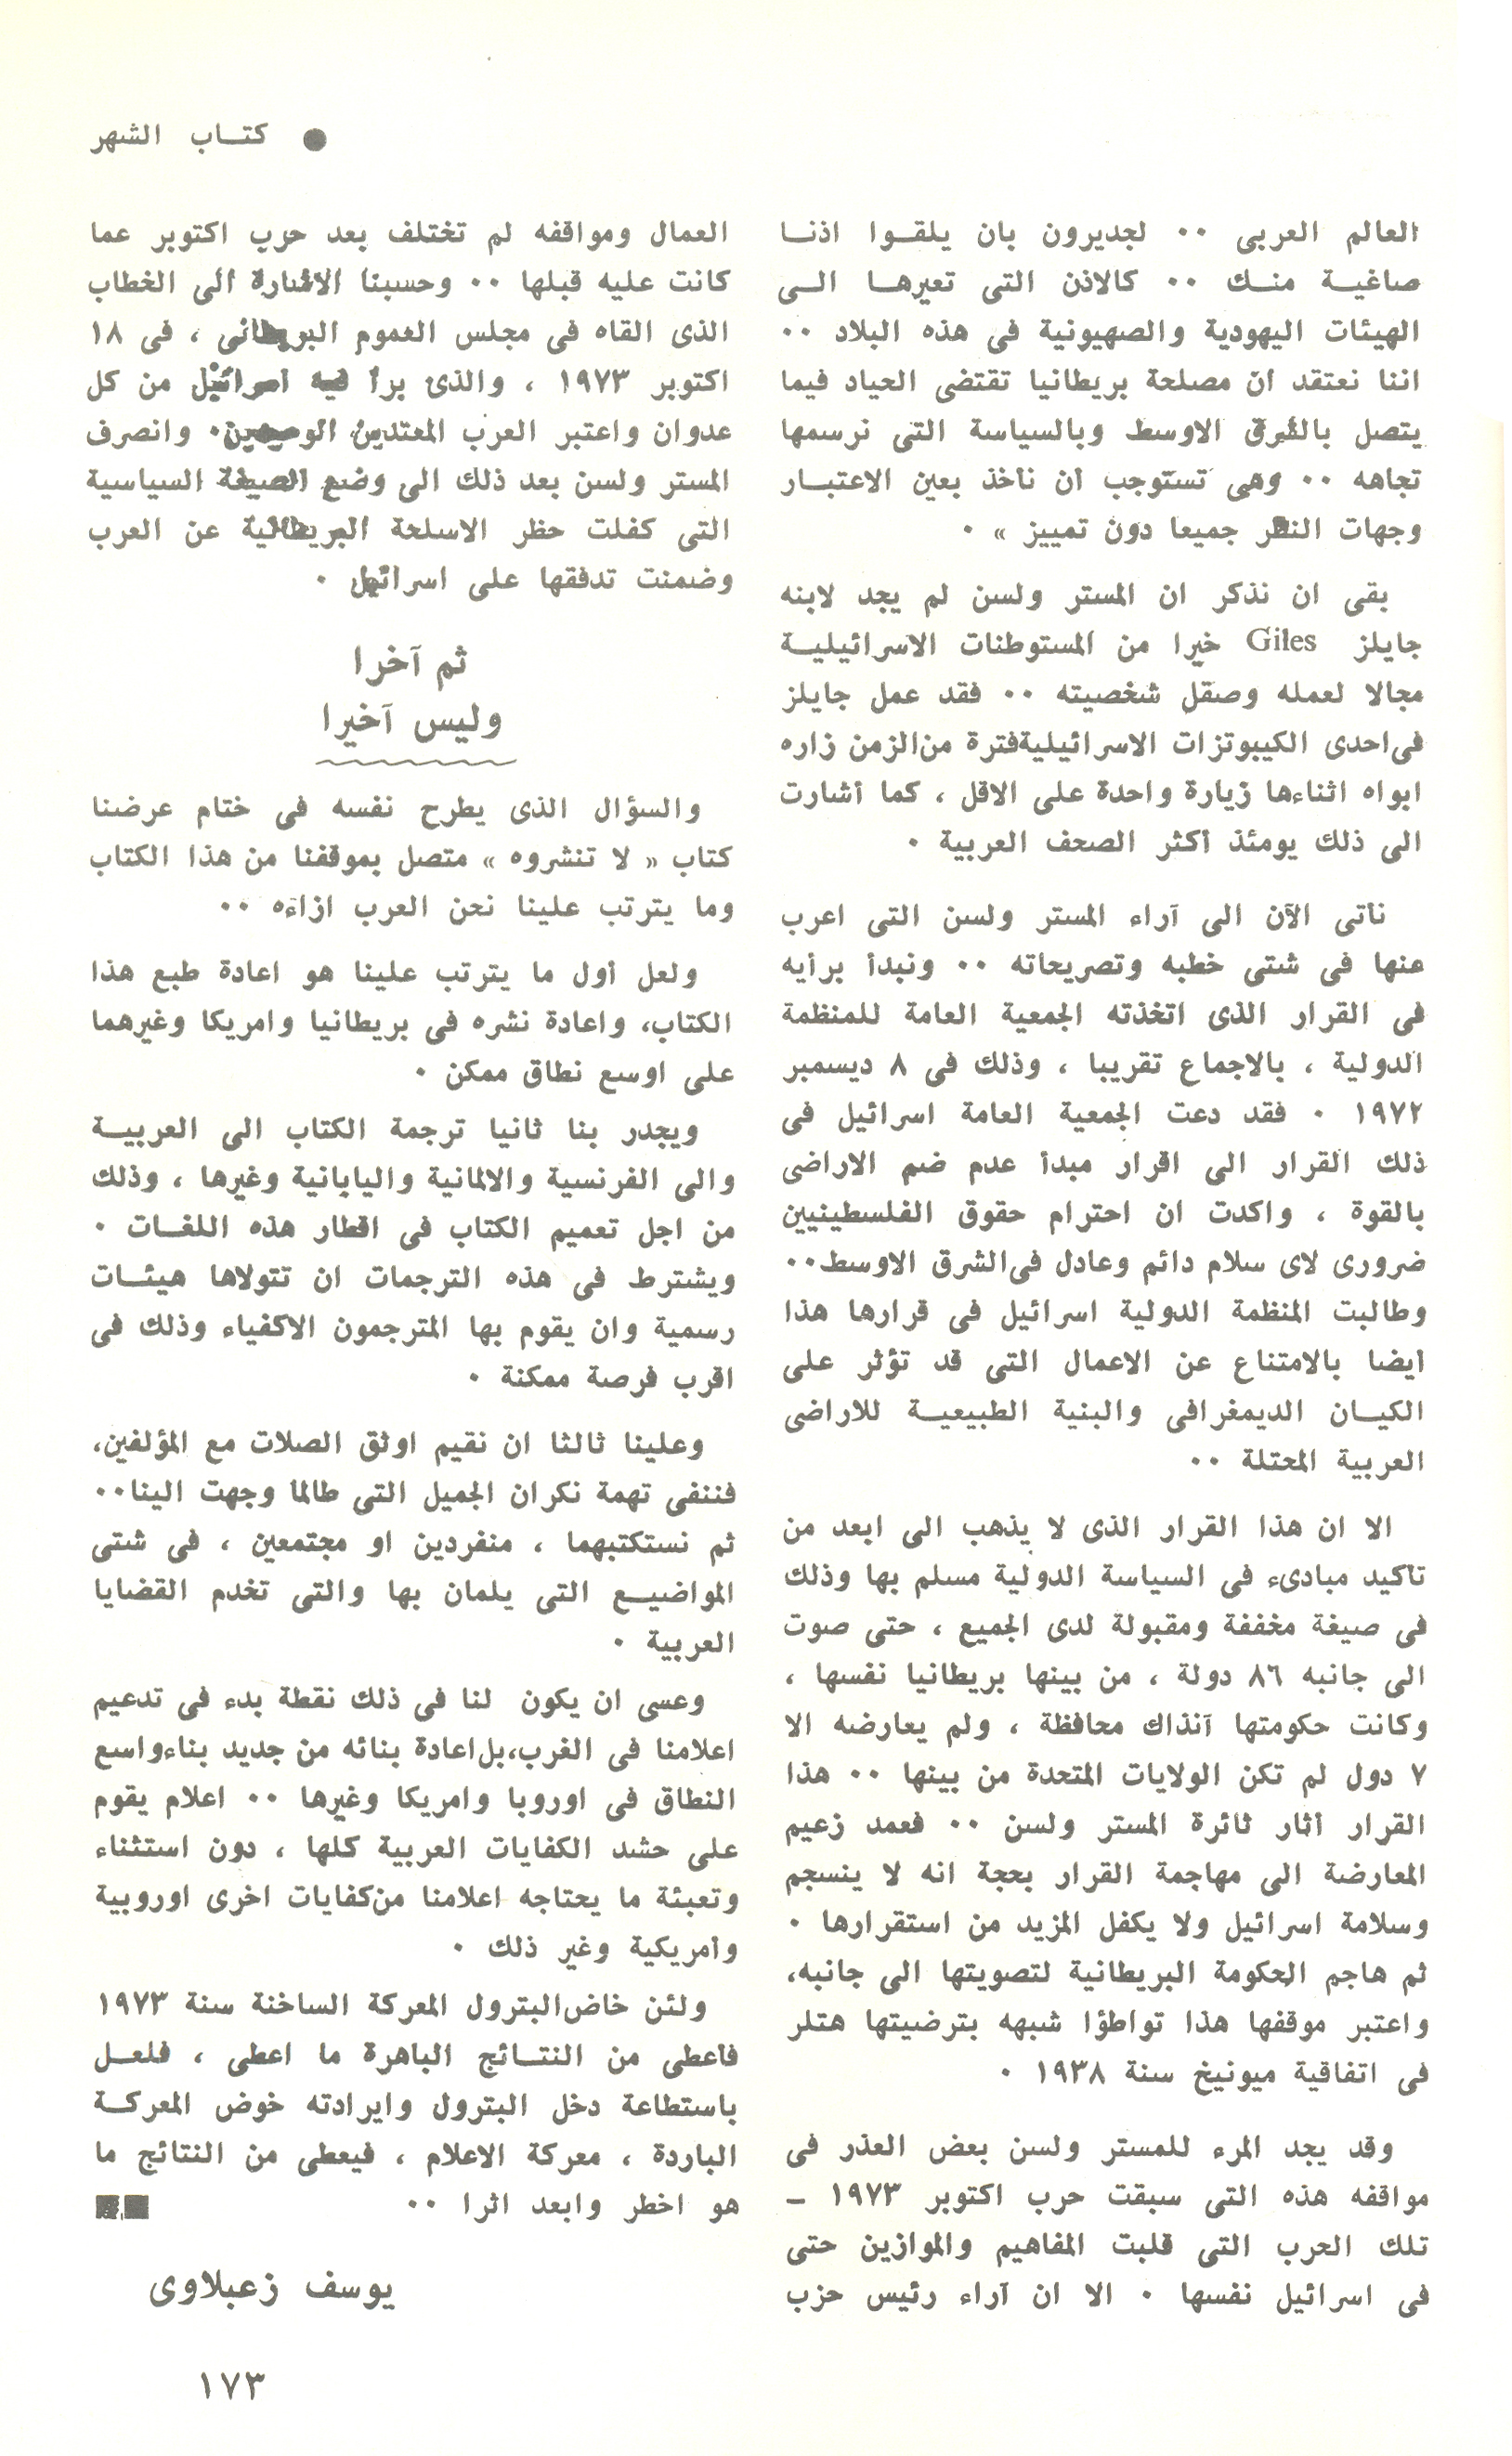 ● كتـاب الشهر
العالم العربى ٠٠ لجديرون بان يلقـوا اذنـا
صاغيـة منـك ٠٠ كالاذن التى تعيرهـا الـى
الهيئات اليهودية والصهيونية فى هذه البلاد ٠٠
اننا نعتقد ان مصلحة بريطانيا تقتضى الحياد فيما
يتصل بالشرق الاوسط وبالسياسة التى نرسمها
تجاهه ٠٠ وهى تستوجب ان نأخذ بعين الاعتبـار
وجهات النظر جميعا دون تمييز » ٠
بقى ان نذكر ان المستر ولسن لم يجد لابنه
جايلز Giles خيرا من المستوطنات الاسرائيليـة
مجالا لعمله وصقل شخصيته ٠٠ فقد عمل جايلز
فى احدى الكيبوتزات الاسرائيلية فترة من الزمن زاره
ابواه اثناءها زيارة واحدة على الاقل ، كما أشارت
الى ذلك يومئذ أكثر الصحف العربية ٠
نأتى الآن الى آراء المستر ولسن التى اعرب
عنها فى شتى خطبه وتصريحاته ٠٠ ونبدأ برأيه
فى القرار الذى اتخذته الجمعية العامة للمنظمة
الدولية ، بالاجماع تقريبا ، وذلك فى ٨ ديسمبر
١٩٧٢ ٠ فقد دعت الجمعية العامة اسرائيل فى
ذلك القرار الى اقرار مبدأ عدم ضم الاراضى
بالقوة ، واكدت ان احترام حقوق الفلسطينيين
ضرورى لاى سلام دائم وعادل فى الشرق الاوسط٠٠
وطالبت المنظمة الدولية اسرائيل فى قرارها هذا
أيضا بالامتناع عن الاعمال التى قد تؤثر على
الكيـان الديمغرافى والبنية الطبيعيـة للاراضى
العربية المحتلة ٠٠
الا ان هذا القرار الذى لا يذهب الى ابعد من
تاكيد مبادىء فى السياسة الدولية مسلم بها وذلك
فى صيغة مخففة ومقبولة لدى الجميع ، حتى صوت
الى جانبه ٨٦ دولة ، من بينها بريطانيا نفسها ،
وكانت حكومتها آنذاك محافظة ، ولم يعارضه الا
٧ دول لم تكن الولايات المتحدة من بينها ٠٠ هذا
القرار أثار ثائرة المستر ولسن ٠٠ فعمد زعيم
المعارضة الى مهاجمة القرار بحجة انه لا ينسجم
وسلامة اسرائيل ولا يكفل المزيد من استقرارها ٠
ثم هاجم الحكومة البريطانية لتصويتها الى جانبه،
واعتبر موقفها هذا تواطؤا شبهه بترضيتها هتلر
فى اتفاقية ميونيخ سنة ١٩٣٨ ٠
وقد يجد المرء للمستر ولسن بعض العذر فى
مواقفه هذه التى سبقت حرب اكتوبر ١٩٧٣ –
تلك الحرب التى قلبت المفاهيم والموازين حتى
فى اسرائيل نفسها ٠ الا ان آراء رئيس حزب
العمال ومواقفه لم تختلف بعد حرب اكتوبر عما
كانت عليه قبلها ٠٠ وحسبنا الاشارة الى الخطاب
الذى القاه فى مجلس العموم البريطانى ، فى ١٨
اكتوبر ١٩٧٣ ، والذى برأ فيه اسرائيل من كل
عدوان واعتبر العرب المعتدين الوحيدين٠ وانصرف
المستر ولسن بعد ذلك الى وضع الصيغة السياسية
التى كفلت حظر الاسلحة البريطانية عن العرب
وضمنت تدفقها على اسرائيل ٠
ثم آخرا
وليس آخيرا
والسؤال الذى يطرح نفسه فى ختام عرضنا
كتاب « لا تنشروه » متصل بموقفنا من هذا الكتاب
وما يترتب علينا نحن العرب ازاءه ٠٠
ولعل أول ما يترتب علينا هو اعادة طبع هذا
الكتاب، واعادة نشره فى بريطانيا وامريكا وغيرهما
على اوسع نطاق ممكن ٠
ويجدر بنا ثانيا ترجمة الكتاب الى العربيـة
والى الفرنسية والالمانية واليابانية وغيرها ، وذلك
من اجل تعميم الكتاب فى اقطار هذه اللغـات ٠
ويشترط فى هذه الترجمات ان تتولاها هيئـات
رسمية وان يقوم بها المترجمون الاكفياء وذلك فى
اقرب فرصة ممكنة ٠
وعلينا ثالثا ان نقيم اوثق الصلات مع المؤلفين،
فننفى تهمة نكران الجميل التى طالما وجهت الينا٠٠
ثم نستكتبهما ، منفردين او مجتمعين ، فى شتى
المواضيـع التى يلمان بها والتى تخدم القضايا
العربية ٠
وعسى ان يكون لنا فى ذلك نقطة بدء فى تدعيم
اعلامنا فى الغرب، بل اعادة بنائه من جديد بناء واسع
النطاق فى اوروبا وامريكا وغيرها ٠٠ اعلام يقوم
على حشد الكفايات العربية كلها ، دون استثناء
وتعبئة ما يحتاجه اعلامنا من كفايات اخرى اوروبية
وأمريكية وغير ذلك ٠
ولئن خاض البترول المعركة الساخنة سنة ١٩٧٣
فأعطى من النتـائج الباهرة ما اعطى ، فلعـل
باستطاعة دخل البترول وايرادته خوض المعركـة
الباردة ، معركة الاعلام ، فيعطى من النتائج ما
هو اخطر وابعد اثرا ٠٠
يوسف زعبلاوى
١٧٣